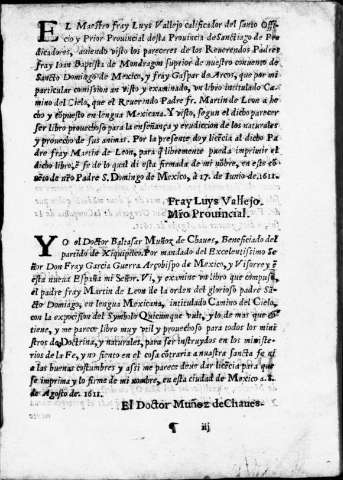 EL Maestro fray Luys Vallejo calificador del santo Offi
cio y Prior Prouincial desta Prouincia de Sanctiago de Pre
dicadores, auiendo visto los pareceres de los Reuerendos Padres
fray Ioan Baptista de Mondragon superior de nuestro conuento de
Sancto Domingo de Mexico, y fray Gaspar de Arcos, que por mi
particular comission an visto y examinado, vn libro intitulado Ca-
mino del Cielo, que el Reuerendo Padre fr. Martin de Leon a he-
cho y cõpuesto en lengua Mexicana. Y visto, segun el dicho parecer
ser libro prouechoso para la enseñança y erudiccion de los naturales
y prouecho de sus animas. Por la presente doy licẽcia al dicho Pa
dre fray Martin de Leon, para q̃ libremente pueda imprimir el
dicho libro, ẽ fe de lo qual di esta firmada de mi nõbre, en este cõ-
uẽto de nr̃o Padre S. Domingo de Mexico, à 17. de Iunio de. 1611.
Fray Luys Vallejo.
Mr̃o Prouincial.
YO el Doctor Baltasar Muñoz de Chaues, Beneficiado del
partido de Xiquipilco. Por mandado del Excelentissimo Se
ñor Don Fray Garcia Guerra Arçobispo de Mexico, y Visorrey ẽ
esta nueua España mi Señor. Vi, y examine vn libro que compuso
el padre fray Martin de Leon de la orden del glorioso padre Sã-
cto Domingo, en lengua Mexicana, intitulado Camino del Cielo,
con la exposiciõn del Symbolo Quicunque vult, y lo de mas que cõ
tiene, y me parece libro muy vtil y prouechoso para todos los mini
stros de Doctrina, y naturales, para ser instruydos en los misterios
rios de la Fe, y no siento en el cosa cõtraria a nuestra sancta fe ni
a las buenas costumbres y assi me parece deue dar licẽcia para que
se imprima y lo firme de mi nombre, en esta ciudad de Mexico a.8.
de Agosto de. 1611.
El Doctor Muñoz de Chaues.
¶ iij